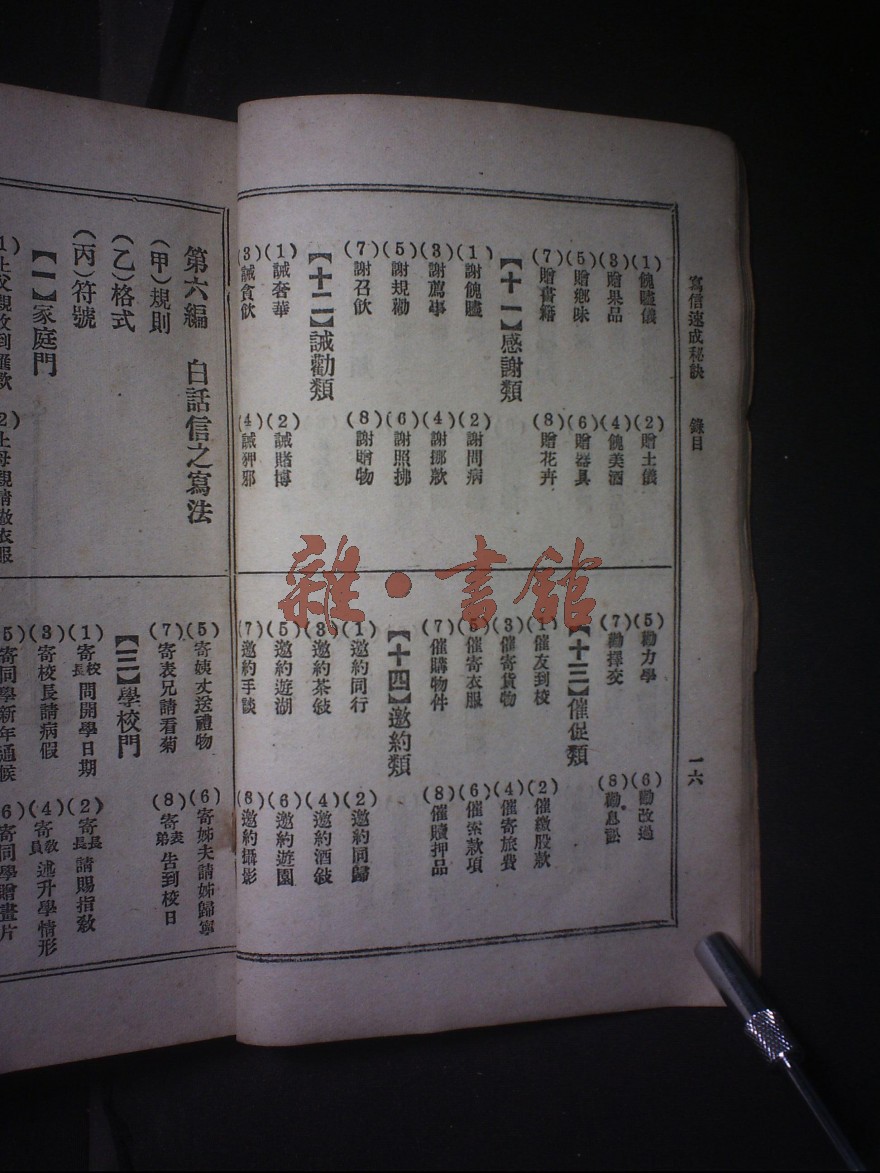 寫信速成秘訣　錄目　一六
(1)餽贐儀　(2)贈土儀
(3)贈果品　(4)餽美酒
(5)贈鄉味　(6)贈器具
(7)贈書籍　(8)贈花卉
【十一】感謝類
(1)謝餽贐　(2)謝問病
(3)謝薦事　(4)謝挪款
(5)謝規勸　(6)謝照拂
(7)謝召飲　(8)謝贈物
【十二】誡勸類
(1)誡奢華　(2)誡賭博
(3)誡貪飲　(4)誡狎邪
(5)勸力學　(6)勸改過
(7)勸擇交　(8)勸息訟
【十三】催促類
(1)催友到校　(2)催繳股款
(3)催寄貨物　(4)催寄旅費
(5)催寄衣服　(6)催索款項
(7)催購物件　(8)催贖押品
【十四】邀約類
(1)邀約同行　(2)邀約同歸
(3)邀約茶敍　(4)邀約酒敍
(5)邀約遊湖　(6)邀約遊園
(7)邀約手談　(8)邀約攝影
第六編　白話信之寫法
(甲)規則
(乙)格式
(丙)符號
【一】家庭門
(1)上父親收到匯款　(2)上母親請做衣服
(5)寄姨丈送禮物　(6)寄姊夫請姊歸寧
(7)寄表兄請看菊　(8)寄表弟告到校日
【三】學校門
(1)寄校長問開學日期　(2)寄長請賜指教
(3)寄校長請病假　(4)寄教員述升學情形
(5)寄同學新年通候　(6)寄同學贈畫片
雜·書館